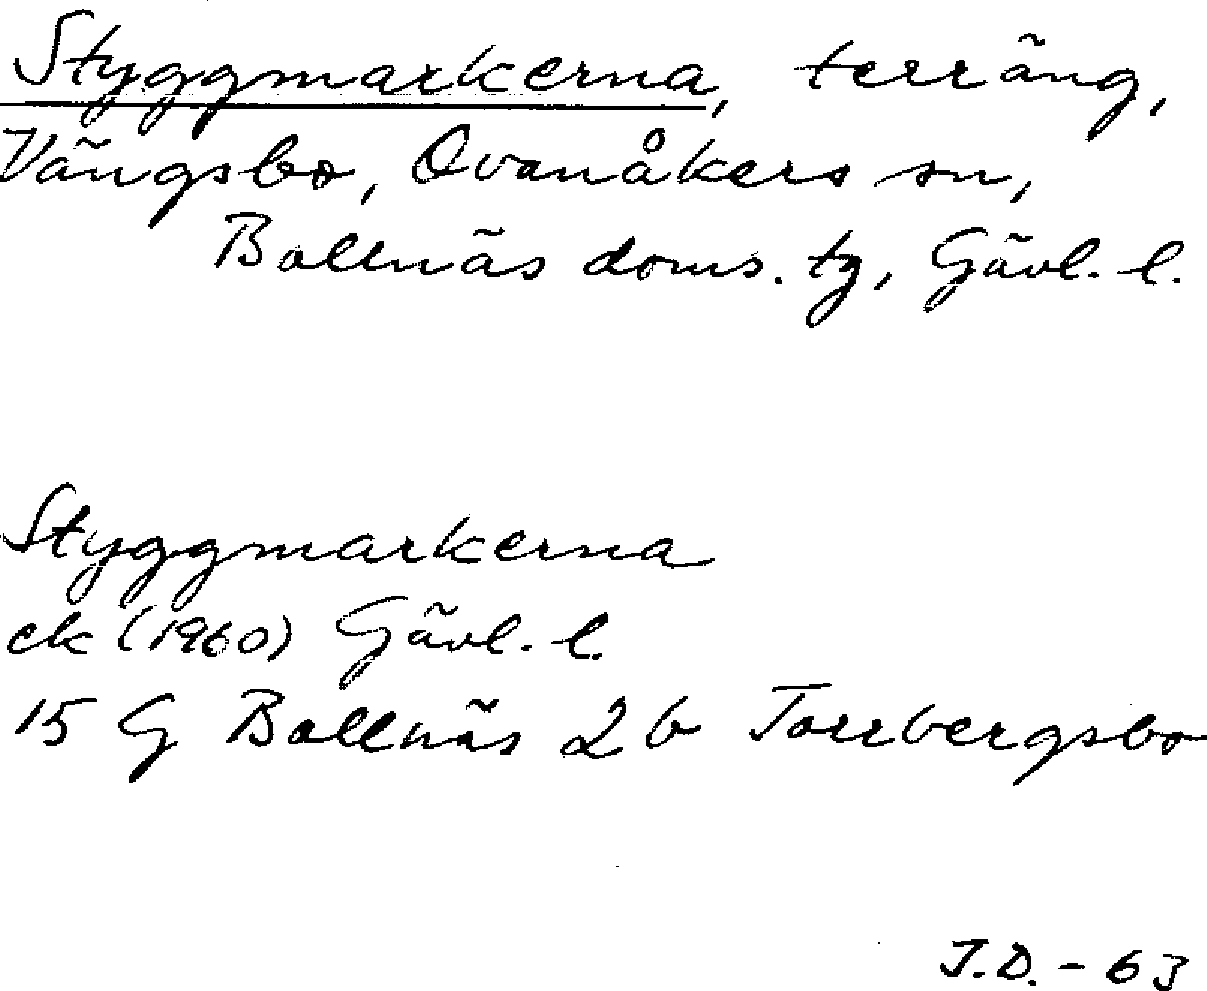 Styggmarkerna, terräng,
Vängsbo, Ovanåkers sn,
Bollnäs doms. tg, Gävl. l.
Styggmarkerna
ek (1960) Gävl. l.
15 G Bollnäs 2 b Torrbergsbo
J.D. - 63